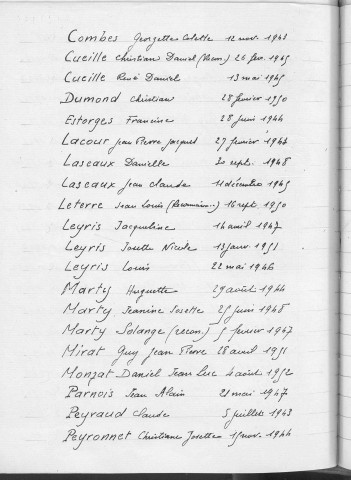 Combes Georgette Colette 12 nov. 1943
Cueille Christian Daniel (Recon.) 26 fev. 1945
Cueille René Daniel 13 mai 1945
Dumond Christian 28 février 1950
Estorges Francine 28 juin 1944
Lacour Jean Pierre Jacques 27 février 1944
Lascaux Danielle 30 sept. 1948
Lascaux Jean Claude 11 décembre 1945
Leterre Jean Louis 16 sept. 1950
Leyris Jacqueline 14 avril 1947
Leyris Josette Nicole 13 janv. 1951
Leyris Louis 22 mai 1946
Marty Huguette 29 août 1944
Marty Jeannine Josette 25 juin 1948
Marty Solange (recon.) 5 février 1947
Mirat Guy Jean Pierre 28 avril 1951
Monzat Daniel Jean Luc 4 août 1952
Parnois Jean Alain 21 mai 1947
Peyraud Claude 5 juillet 1943
Peyronnet Christiane Josette 15 nov. 1944